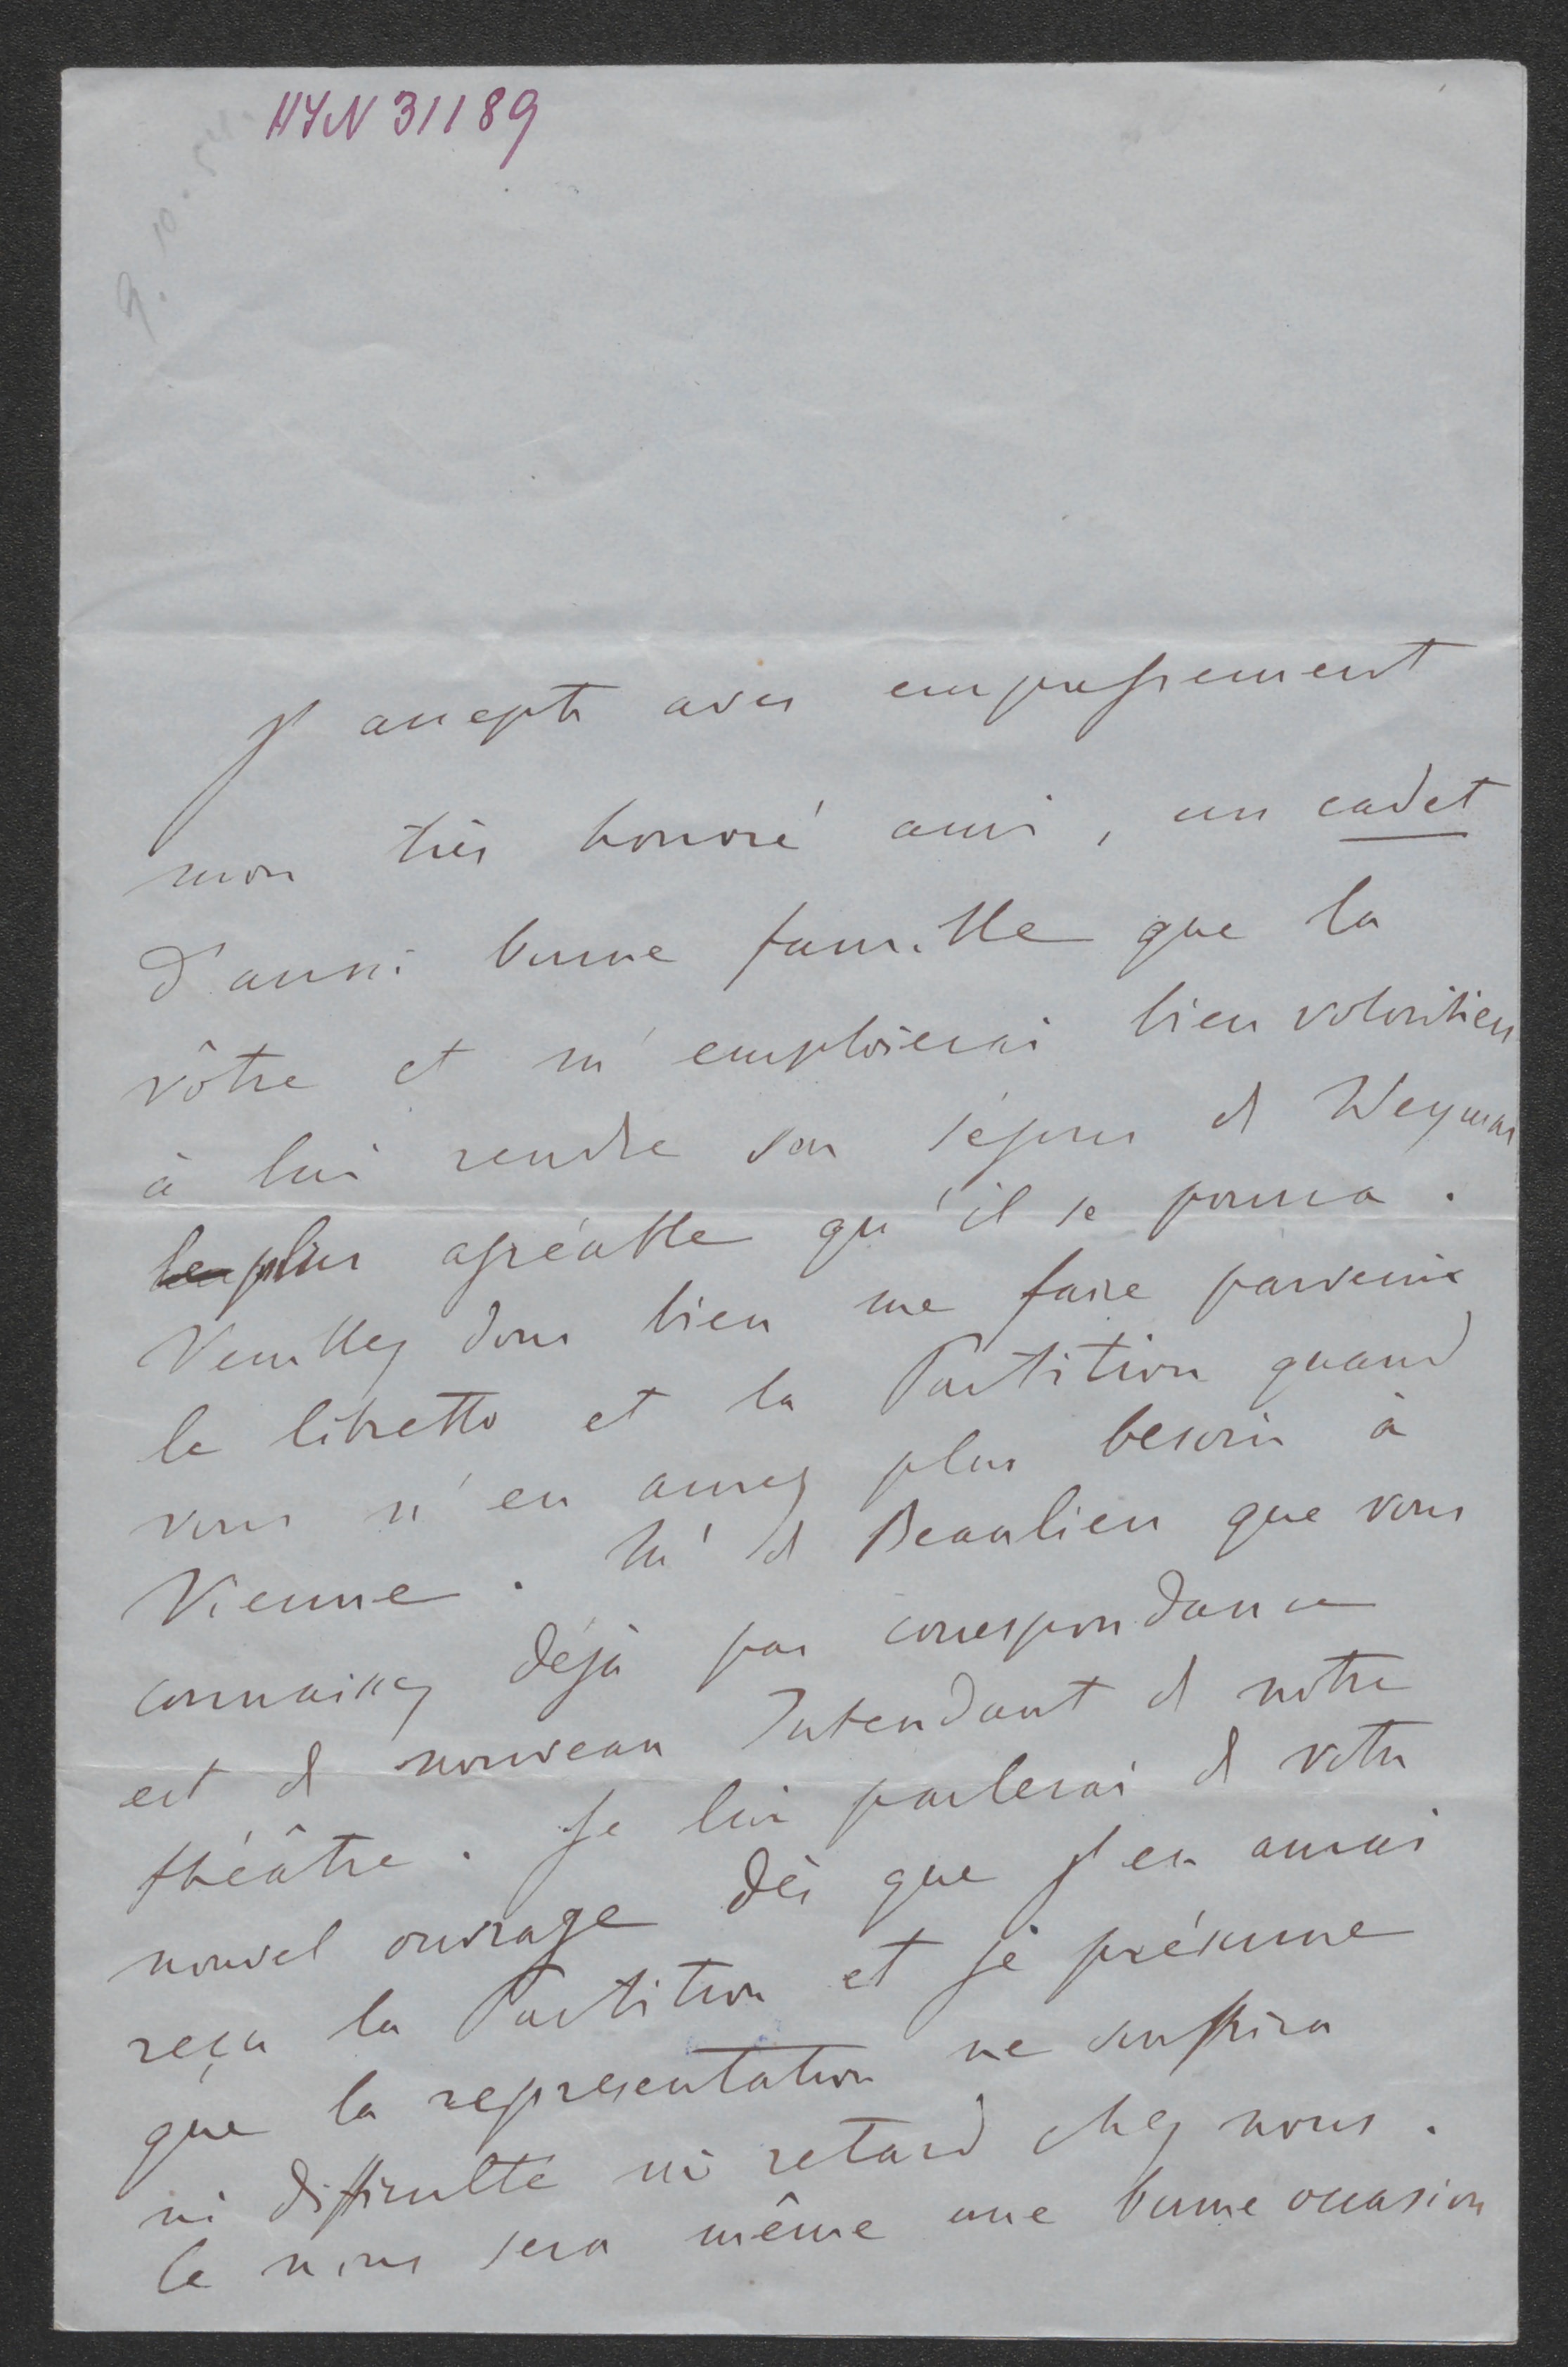 HYN 31189
9. 10. 54.
J'accepte avec empressement
mon très honoré ami, un cadet
d'aussi bonne famille que la
vôtre et m'emploierai bien volontiers
à lui rendre son séjour de Weymar
plus agréable qu'il se pourra.
Veuillez donc bien me faire parvenir
le libretto et la Partition quand
vous n'en aurez plus besoin à
Vienne. Mr de Beaulieu que vous
connaissez déjà par correspondance
est de nouveau Intendant de notre
théâtre. Je lui parlerai de votre
nouvel ouvrage dès que j'en aurai
reçu la Partition et je présume
que la représentation ne souffrira
ni difficulté ni retard chez nous.
Ce nous sera même une bonne occasion